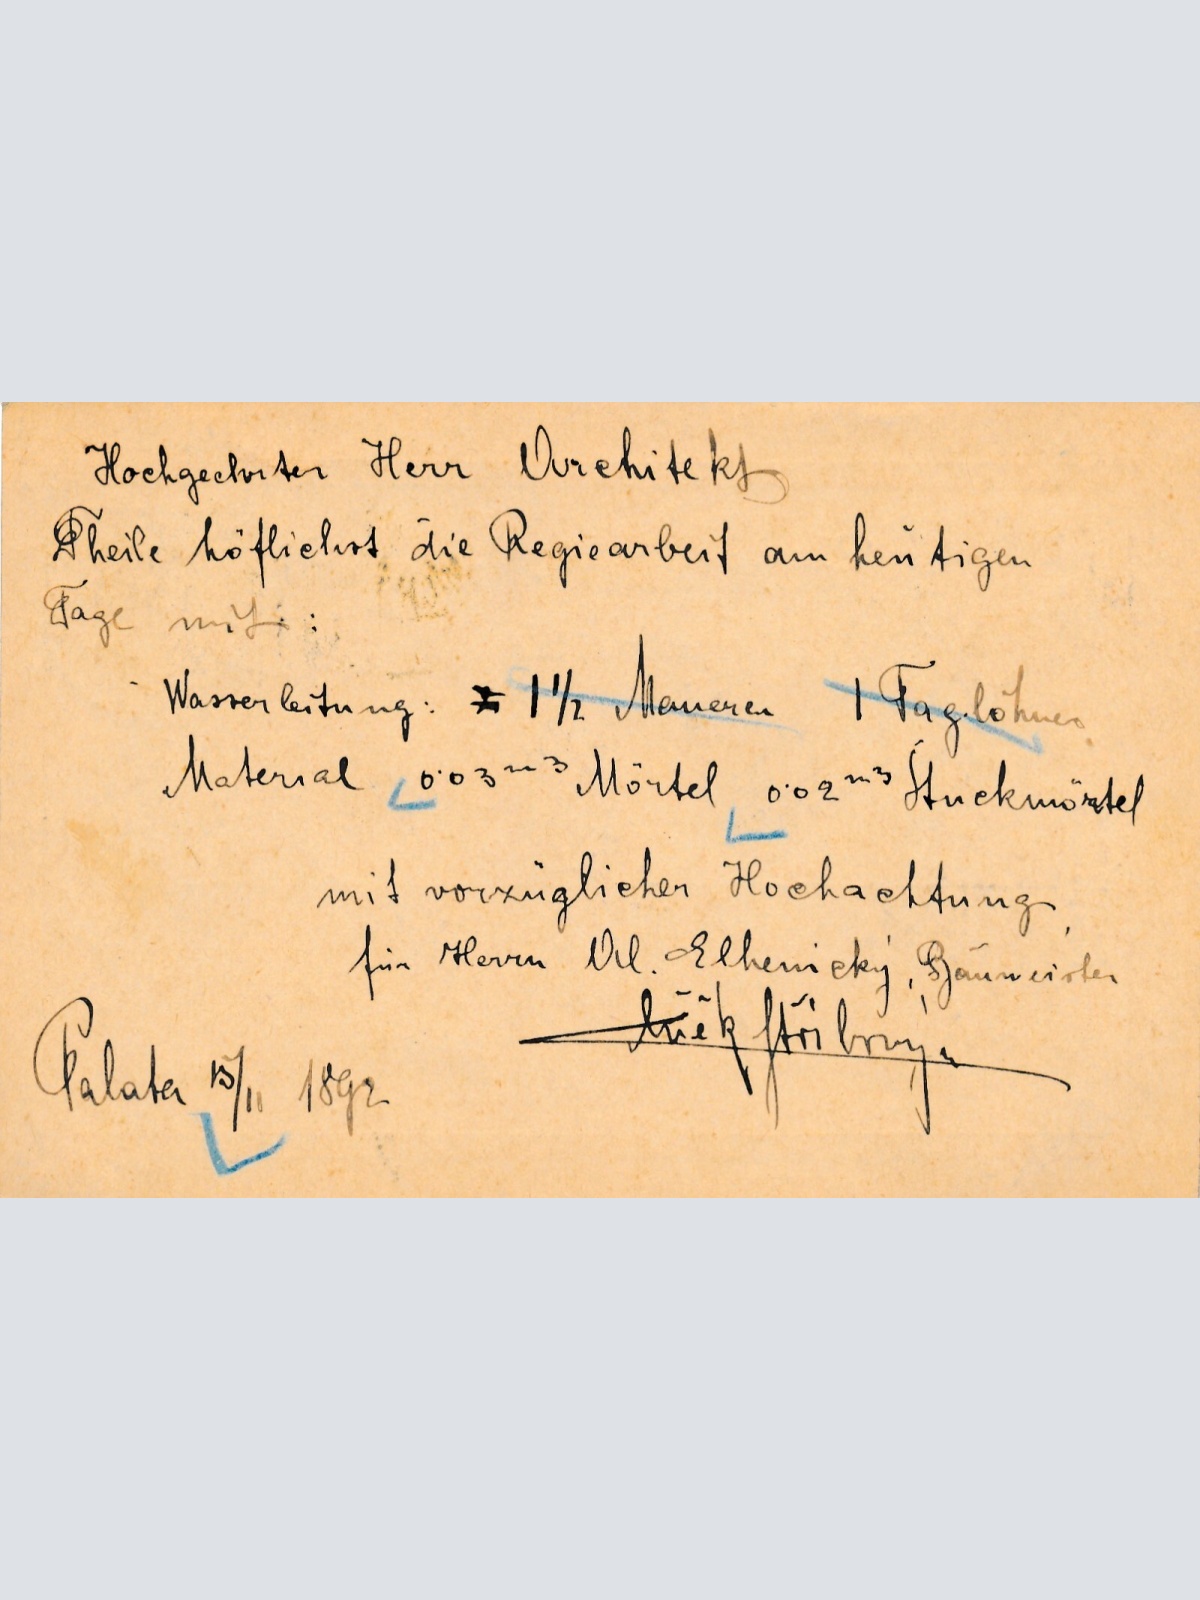 Hochgeehrter Herr Architekt
Theile höflichst die Regiearbeit am heutigen
Tage mit :
Wasserleitung: 1 1/2 Maurer 1 Taglöhner
Material 0·03 m3 Mörtel 0·02 m3 Stuckmörtel
mit vorzüglicher Hochachtung
für Herrn Al. Elhenický, Baumeister
Palata 15/11 1892